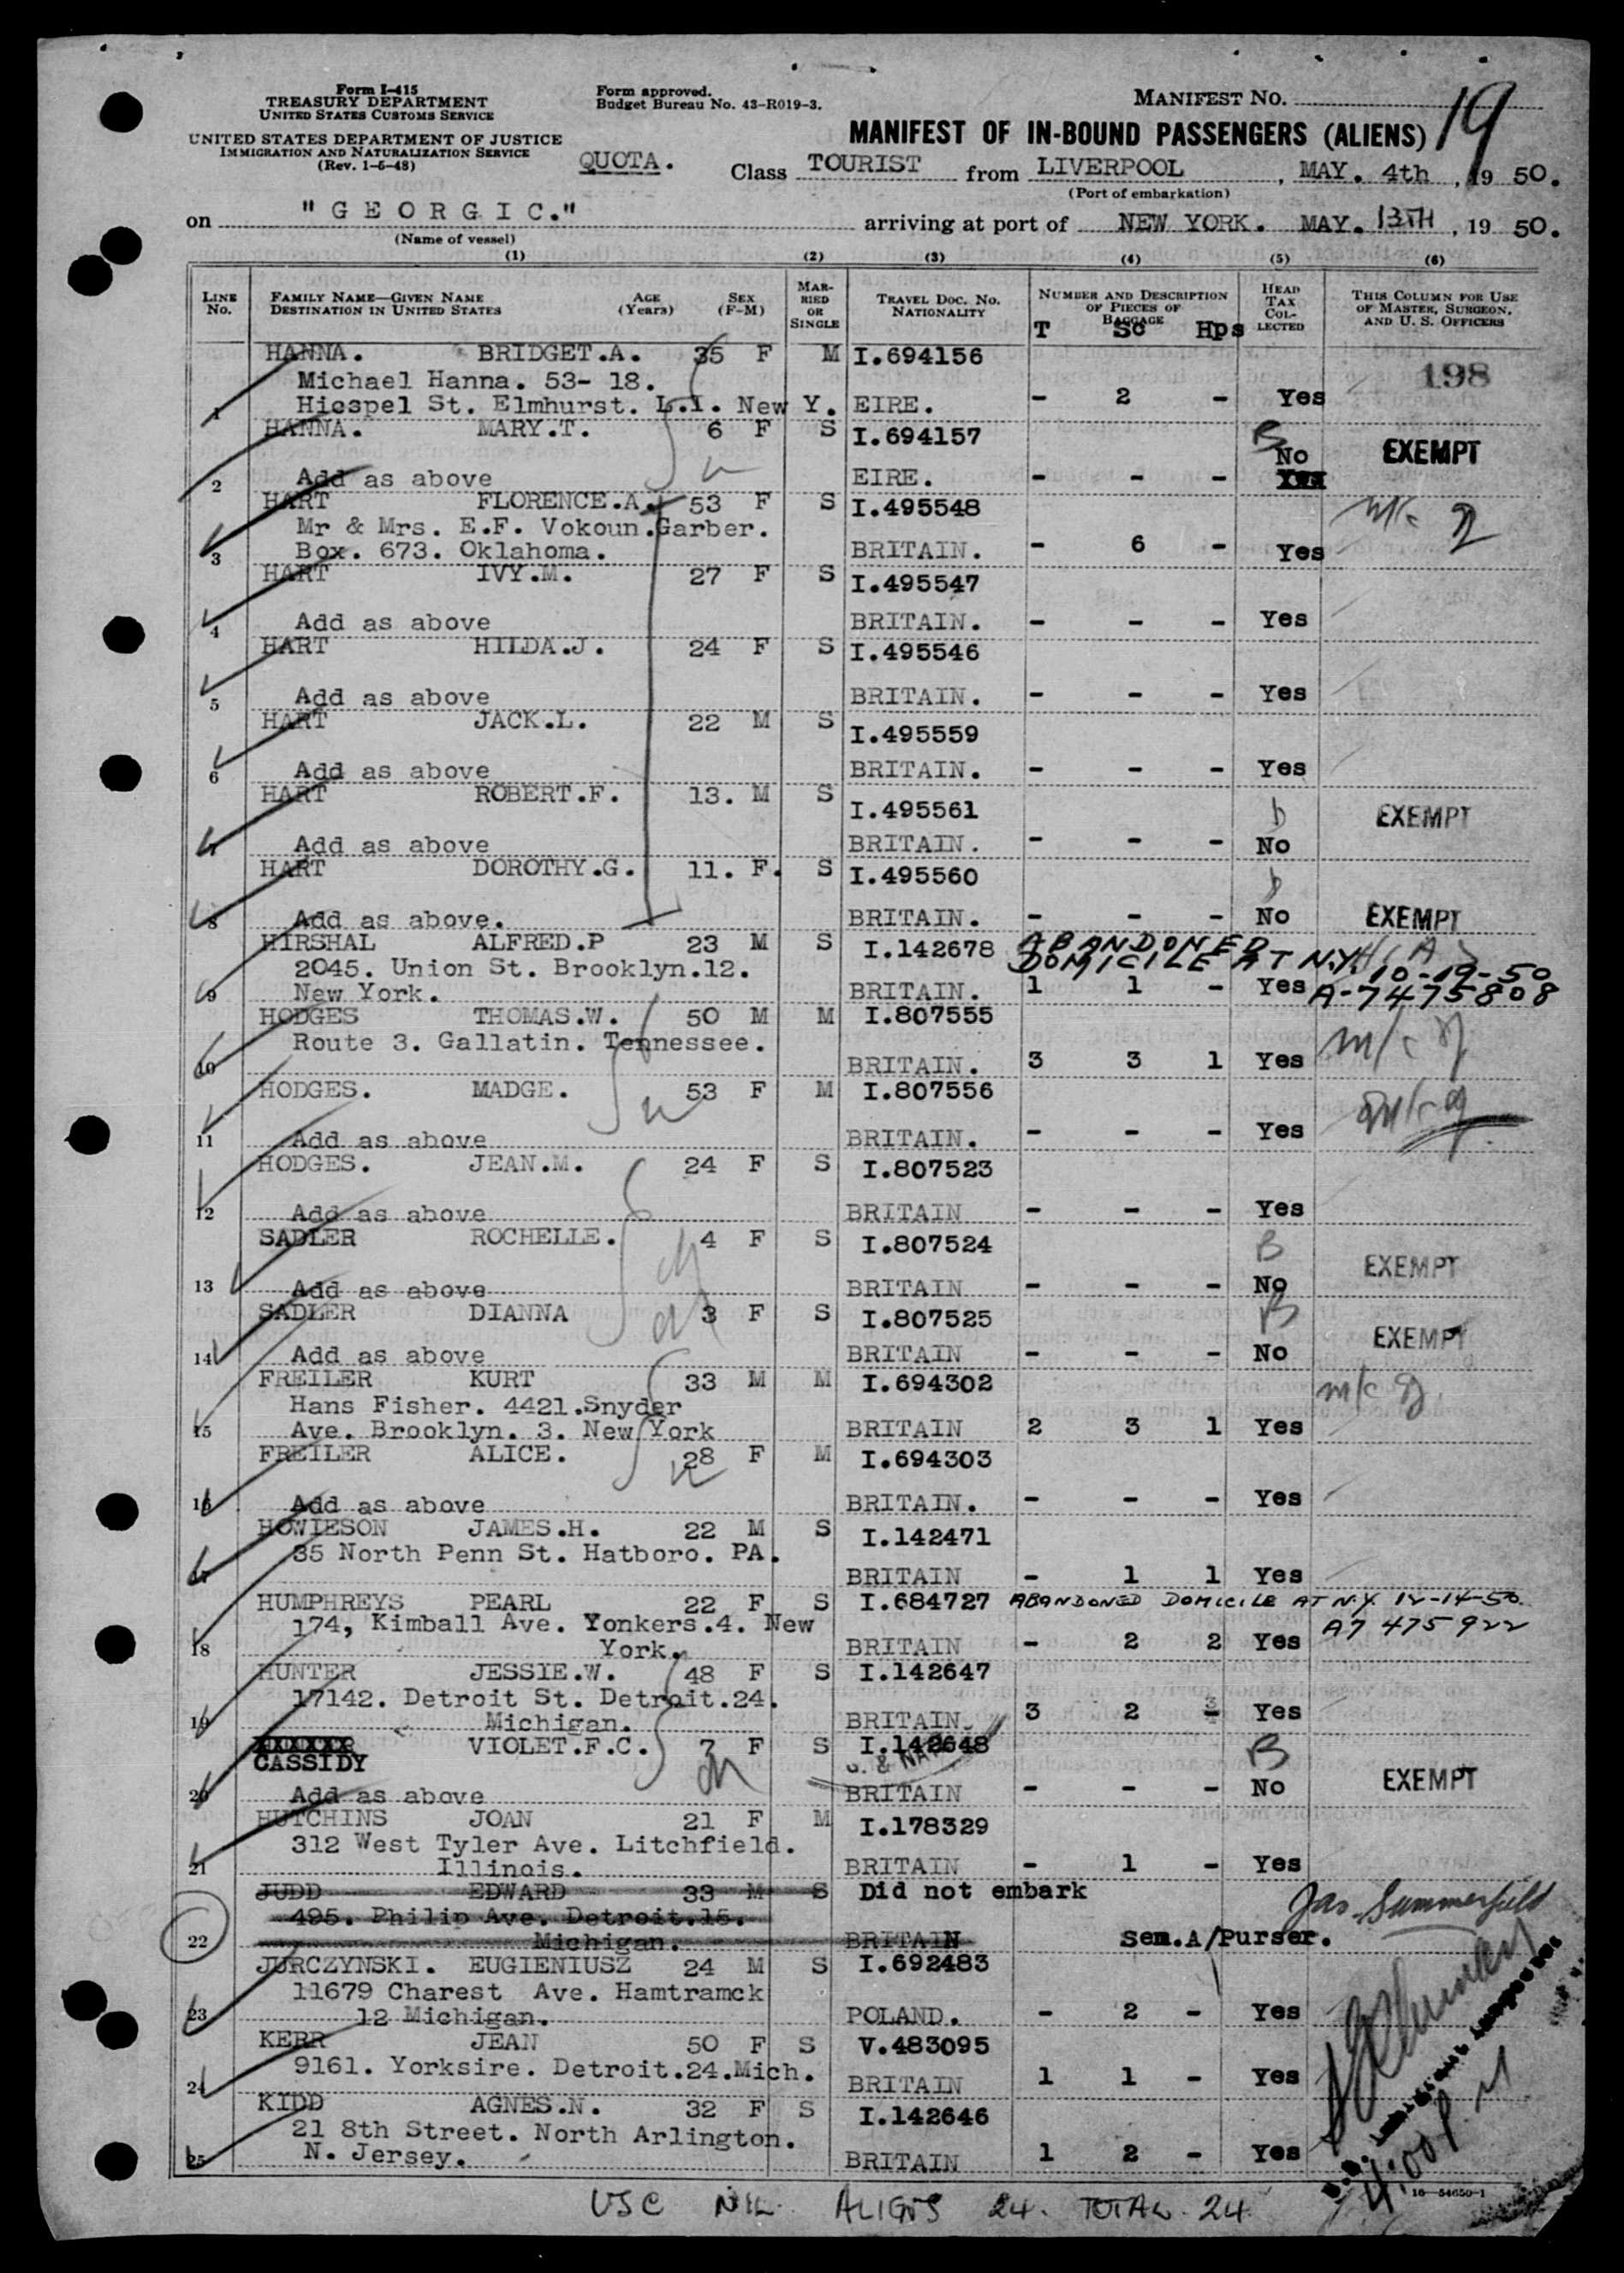 Form I-415
TREASURY DEPARTMENT
UNITED STATES CUSTOMS SERVICE
UNITED STATES DEPARTMENT OF JUSTICE
IMMIGRATION AND NATURALIZATION SERVICE
(Rev. 1-5-48)
Form approved.
Budget Bureau No. 43-R019-3.
MANIFEST NO. 19
MANIFEST OF IN-BOUND PASSENGERS (ALIENS)
QUOTA. Class TOURIST from LIVERPOOL , MAY. 4th , 19 50.
(Port of embarkation)
on "GEORGIC." arriving at port of NEW YORK. MAY. 13TH , 19 50.
(Name of vessel)
(1) (2) (3) (4) (5) (6)
LINE NO. FAMILY NAME—GIVEN NAME DESTINATION IN UNITED STATES AGE (Years) SEX (F-M) MARRIED OR SINGLE TRAVEL DOC. NO. NATIONALITY NUMBER AND DESCRIPTION OF PIECES OF BAGGAGE HEAD TAX COLLECTED THIS COLUMN FOR USE OF MASTER, SURGEON, AND U. S. OFFICERS
T Sc Hps
HANNA. BRIDGET.A. 35 F M I.694156 198
Michael Hanna. 53- 18.
1 Hiospel St. Elmhurst. L.I. New Y. EIRE. - 2 - Yes
HANNA. MARY.T. 6 F S I.694157 B No EXEMPT
2 Add as above EIRE. - - - Yes
HART FLORENCE.A. 53 F S I.495548
Mr & Mrs. E.F. Vokoun.Garber.
3 Box. 673. Oklahoma. BRITAIN. - 6 - Yes
HART IVY.M. 27 F S I.495547
4 Add as above BRITAIN. - - - Yes
HART HILDA.J. 24 F S I.495546
5 Add as above BRITAIN. - - - Yes
HART JACK.L. 22 M S I.495559
6 Add as above BRITAIN. - - - Yes
HART ROBERT.F. 13. M S I.495561 EXEMPT
7 Add as above BRITAIN. - - - No
HART DOROTHY.G. 11. F. S I.495560
8 Add as above. BRITAIN. - - - No EXEMPT
HIRSHAL ALFRED.P 23 M S I.142678 ABANDONED
2045. Union St. Brooklyn.12. DOMICILE AT N.Y. 10-19-50
9 New York. BRITAIN. 1 1 - Yes A-7475808
HODGES THOMAS.W. 50 M M I.807555
Route 3. Gallatin. Tennessee.
10 BRITAIN. 3 3 1 Yes
HODGES. MADGE. 53 F M I.807556
11 Add as above BRITAIN. - - - Yes
HODGES. JEAN.M. 24 F S I.807523
12 Add as above BRITAIN - - - Yes
SADLER ROCHELLE. 4 F S I.807524 B EXEMPT
13 Add as above BRITAIN - - - No
SADLER DIANNA 3 F S I.807525 B EXEMPT
14 Add as above BRITAIN - - - No
FREILER KURT 33 M M I.694302
Hans Fisher. 4421.Snyder
15 Ave. Brooklyn. 3. New York BRITAIN 2 3 1 Yes
FREILER ALICE. 28 F M I.694303
16 Add as above BRITAIN. - - - Yes
HOWIESON JAMES.H. 22 M S I.142471
35 North Penn St. Hatboro. PA.
17 BRITAIN - 1 1 Yes
HUMPHREYS PEARL 22 F S I.684727 ABANDONED DOMICILE AT N.Y. 12-14-50.
174, Kimball Ave. Yonkers.4. New A7 475922
18 York. BRITAIN - 2 2 Yes
HUNTER JESSIE.W. 48 F S I.142647
17142. Detroit St. Detroit.24.
19 Michigan. BRITAIN. 3 2 - Yes
CASSIDY VIOLET.F.C. 7 F S I.142648 B EXEMPT
20 Add as above BRITAIN - - - No
HUTCHINS JOAN 21 F M I.178329
312 West Tyler Ave. Litchfield.
21 Illinois. BRITAIN - 1 - Yes
JUDD EDWARD 33 M S Did not embark
495. Philip Ave. Detroit.15. Jas Summerfield
22 Michigan. BRITAIN Sen.A/Purser.
JURCZYNSKI. EUGIENIUSZ 24 M S I.692483
11679 Charest Ave. Hamtramck
23 12 Michigan. POLAND. - 2 - Yes
KERR JEAN 50 F S V.483095
9161. Yorksire. Detroit.24.Mich.
24 BRITAIN 1 1 - Yes
KIDD AGNES.N. 32 F S I.142646
21 8th Street. North Arlington.
25 N. Jersey. BRITAIN 1 2 - Yes
16—54650-1
USC NIL. ALIENS 24. TOTAL. 24